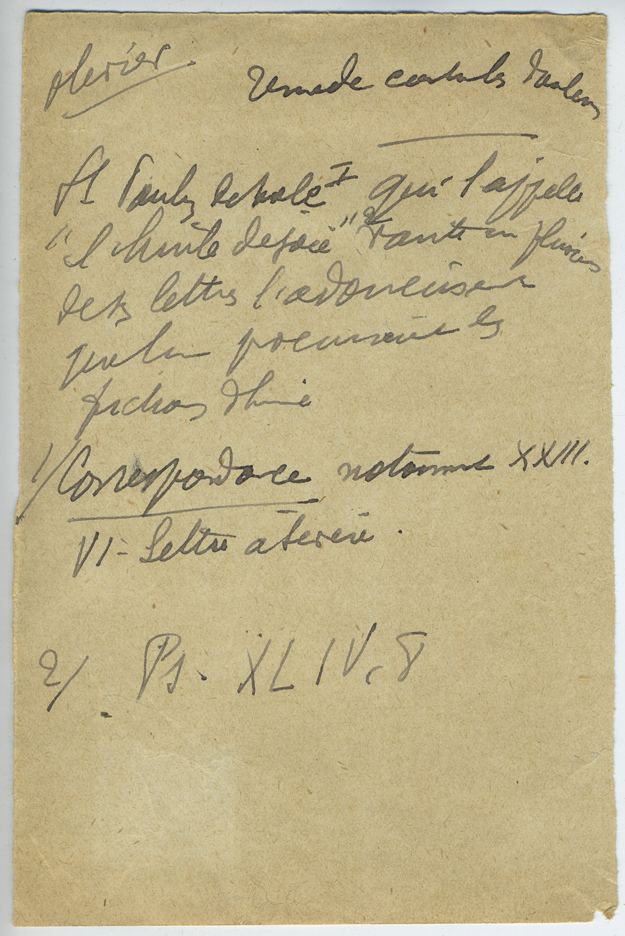 olivier remède contre les douleurs
St Paulin de Nole 1 qui l'appelle
"l'huile de joie" 2 vante en plusieurs
de ses lettres l'adoucissement
que lui procuraient les
frictions d'huile
1/ Correspondance notamment XXIII.
VI - Lettre à Sévère.
2/ Ps. XLIV, 8